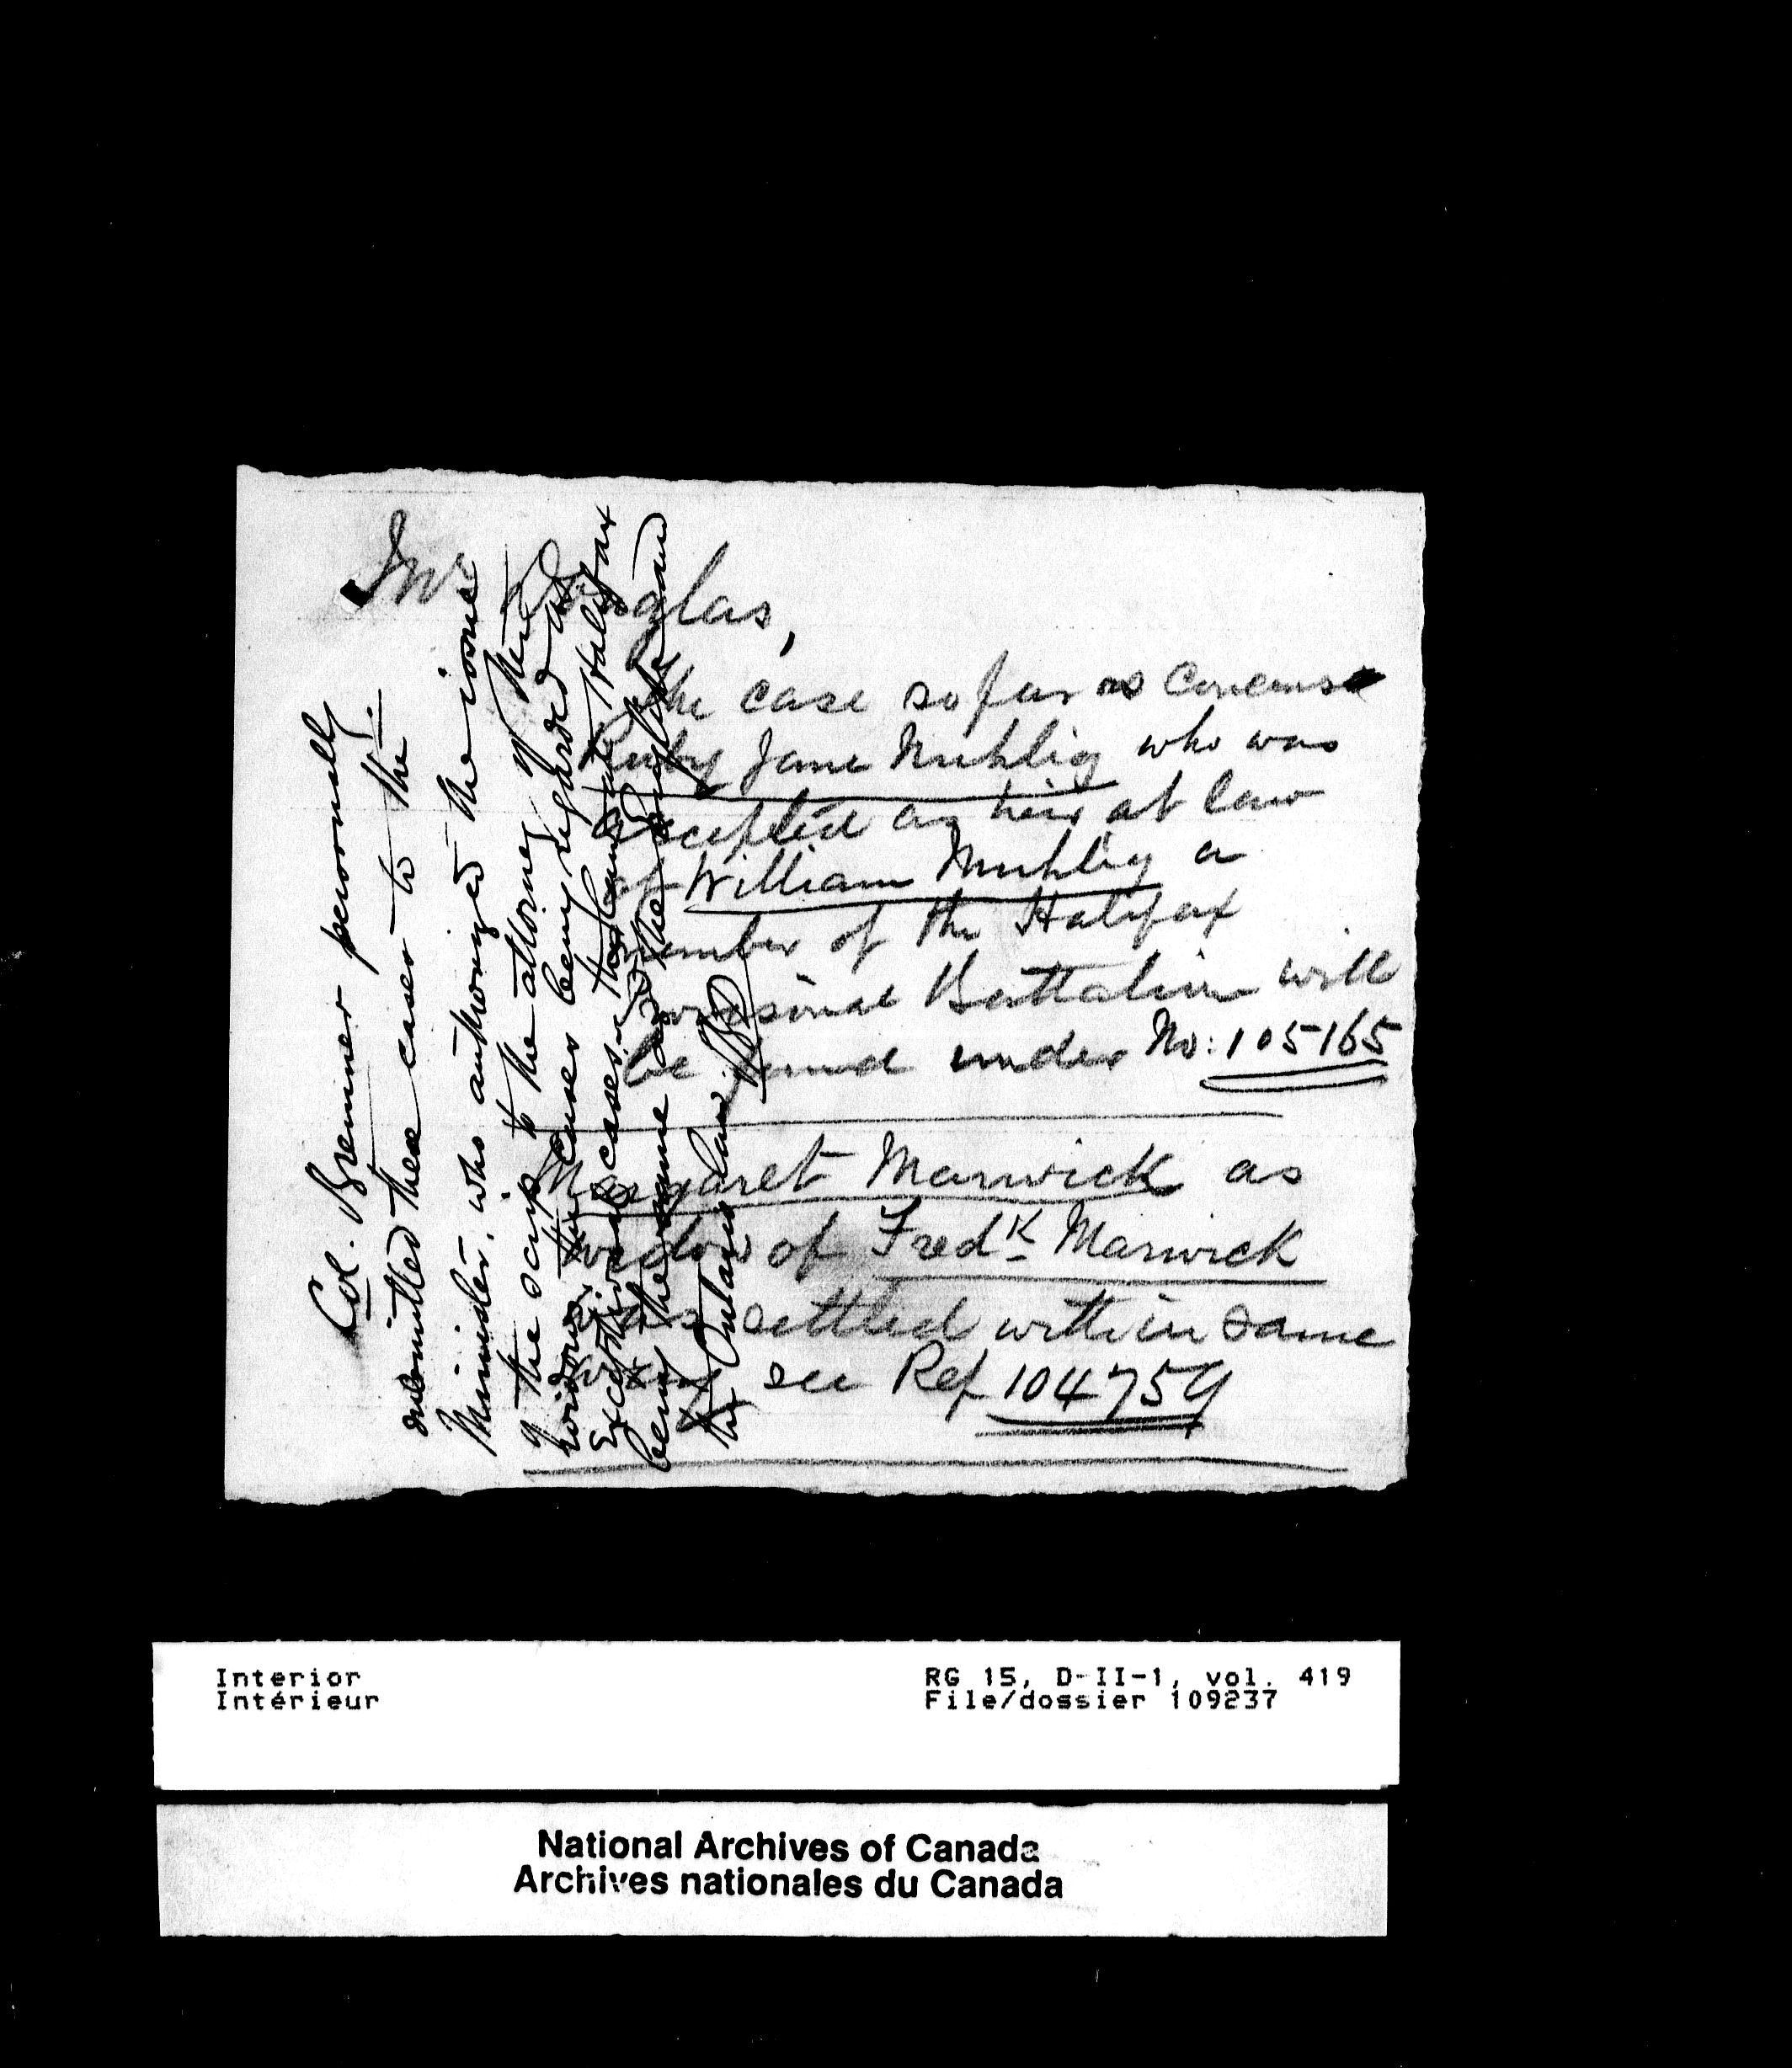 Mr Douglas,
The case so far as concerns
Ruby Jane Muhlig who was
accepted as heir at law
of William Muhlig a
member of the Halifax
Provisional Battalion will
be found under No: 105165
Margaret Marwick as
widow of Fredk Marwick
was settled within same
way see Ref 104759
Col. Bremner personally
submitted these cases to the
Minister, who authorized the issue
of the scrip to the attorney of these
widows, the cases being regarded as
exceptional cases - the law at Halifax
being the same as the English law and
the Ontario law
Interior
Intérieur
RG 15, D-II-1, vol. 419
File/dossier 109237
National Archives of Canada
Archives nationales du Canada